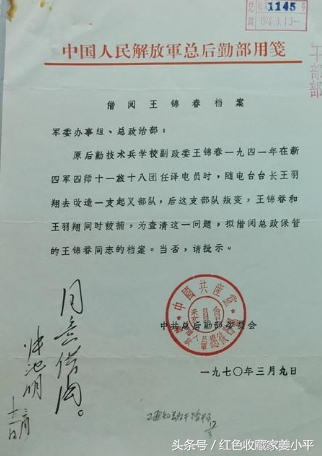 1145
中国人民解放軍总后勤部用笺
借阅王锦春档案
军委办事组、总政治部：
原后勤技术兵学校副政委王锦春一九四一年在新
四军四师十一旅十八团任译电员时，随电台台长王羽
翔去改造一支起义部队，后这支部队叛变，王锦春和
王羽翔同时被捕，为查清这一问题，拟借阅总政保管
的王锦春同志的档案。当否，请批示。
中共总后勤部委员会
一九七〇年三月九日
同意借阅。
头条号 / 红色收藏家姜小平